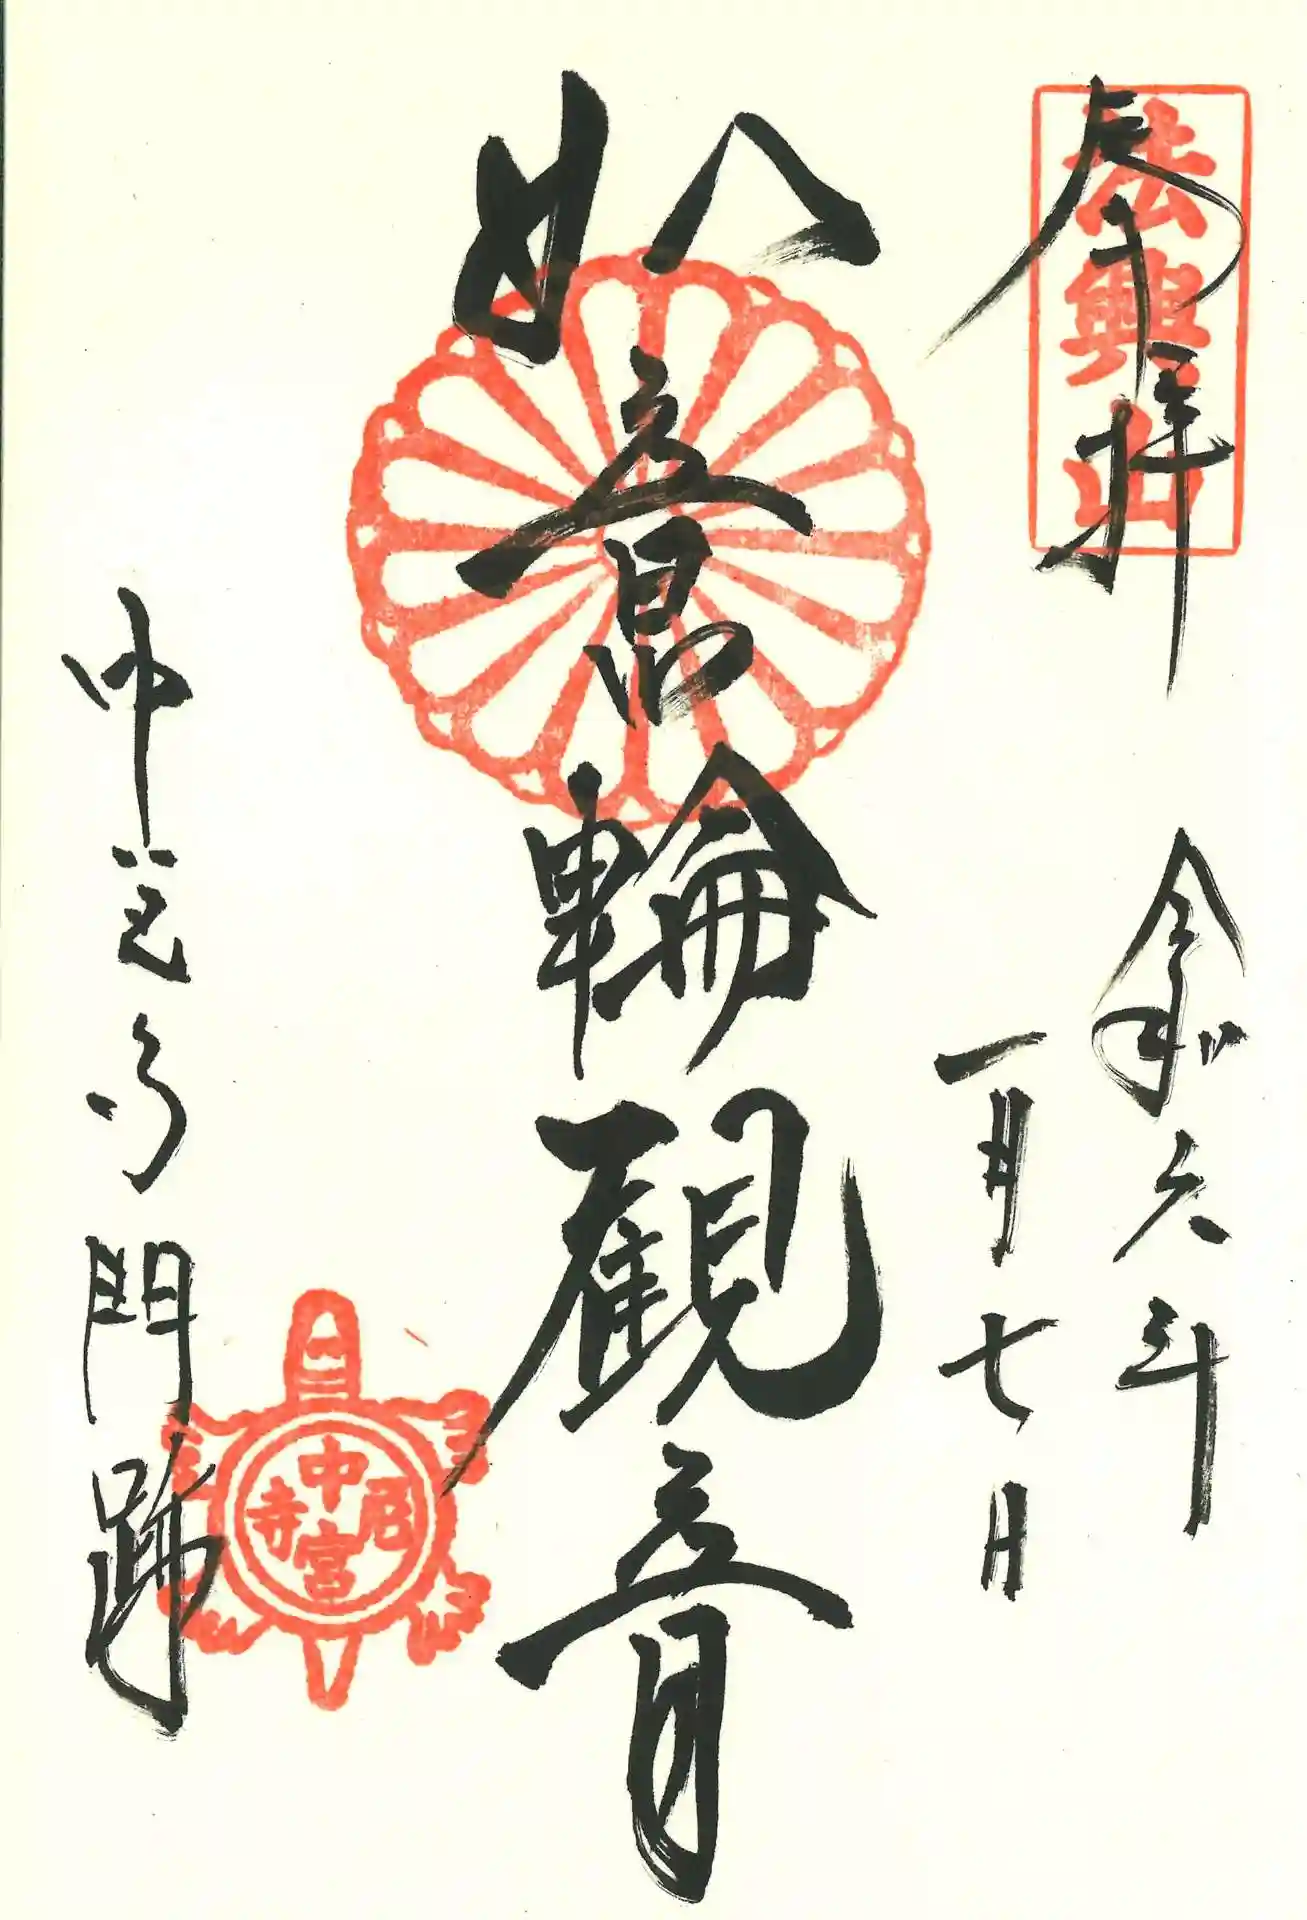 奉拝
法興山
令和六年
一月七日
如意輪観音
中宮寺門跡
中宮尼寺